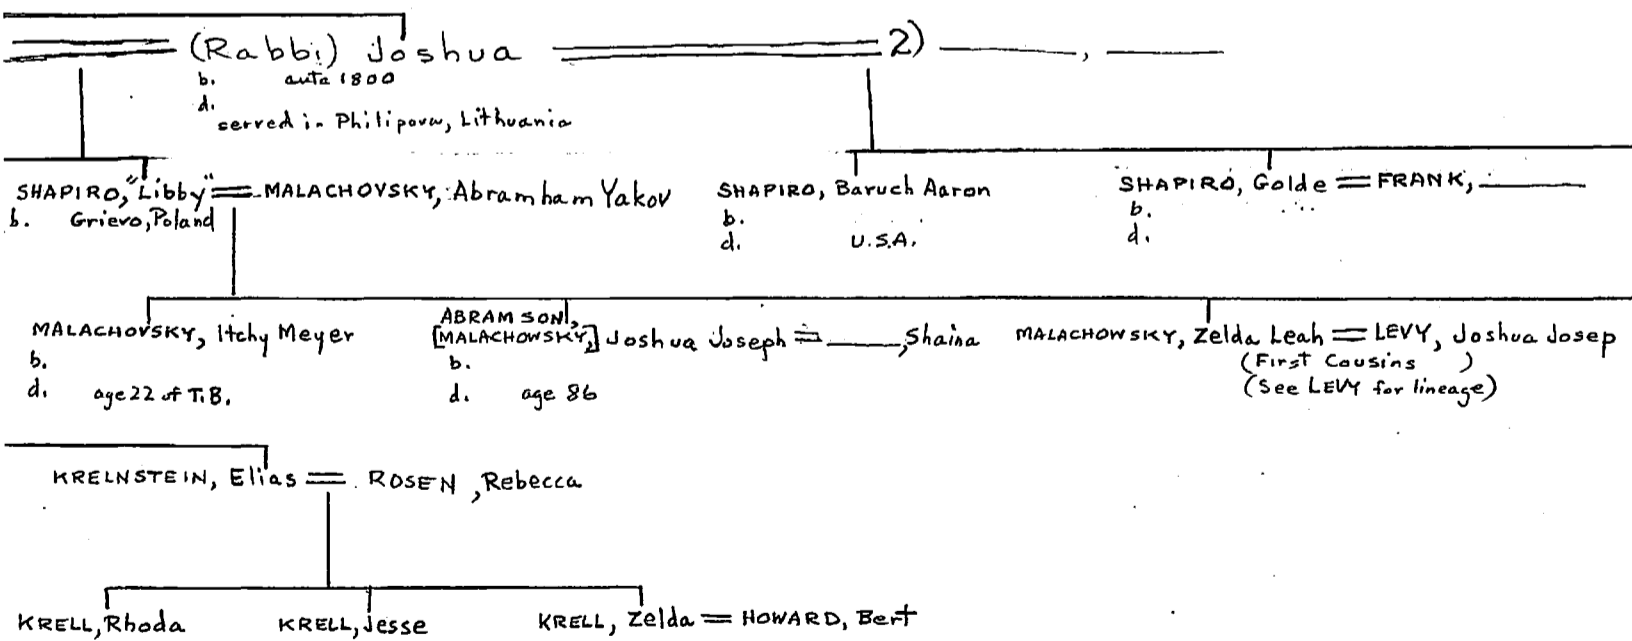 (Rabbi) Joshua 2) ______, ______
b. anta 1800
d.
served in Philipova, Lithuania
SHAPIRO, "Libby" = MALACHOVSKY, Abramham Yakov
b. Grievo, Poland
SHAPIRO, Baruch Aaron
b.
d. U.S.A.
SHAPIRO, Golde = FRANK, ______
b.
d.
MALACHOVSKY, Itchy Meyer
b.
d. age 22 of T.B.
ABRAMSON,
[MALACHOWSKY,] Joshua Joseph = ______, Shaina
b.
d. age 86
MALACHOWSKY, Zelda Leah = LEVY, Joshua Josep
(First Cousins )
(See LEVY for lineage)
KRELNSTEIN, Elias = ROSEN, Rebecca
KRELL, Rhoda
KRELL, Jesse
KRELL, Zelda = HOWARD, Bert